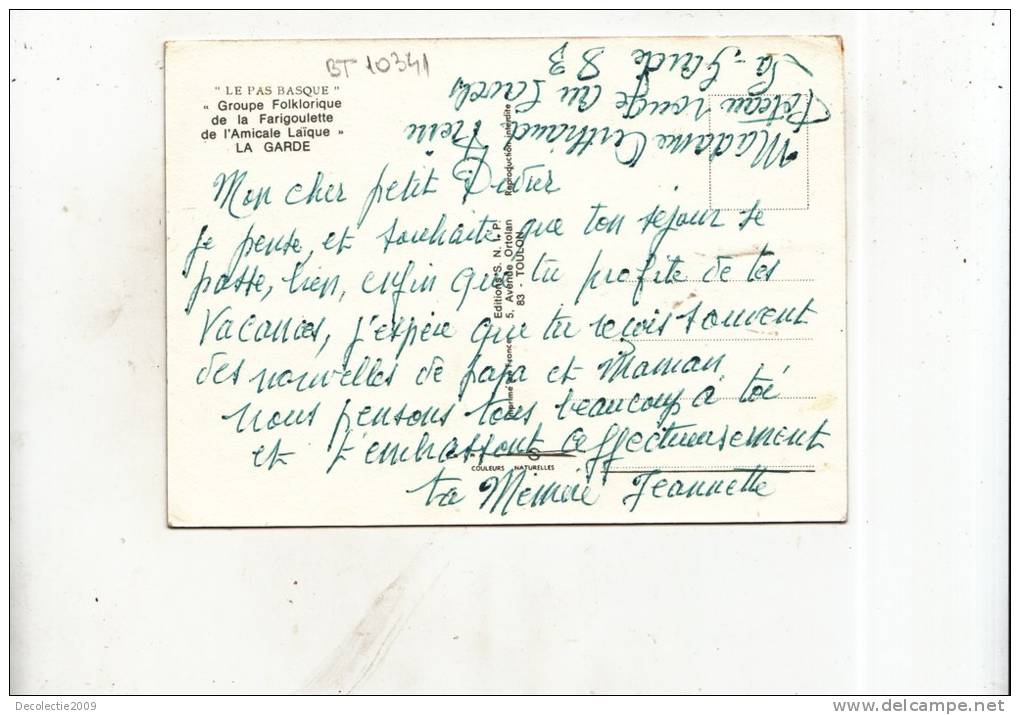 BT 10341
" LE PAS BASQUE "
« Groupe Folklorique
de la Farigoulette
de l'Amicale Laïque »
LA GARDE
Madame
rouge au
La Garde 83
Mon cher petit
je pense, et souhaite que ton sejour se
passe, bien, enfin que tu profite de tes
Vacances, j'espère que tu reçois souvent
des nouvelles de papa et Maman,
nous pensons tous beaucoup à toi
et t'embrassont affectueusement
ta Mémère Jeannette
Editions S. N. I. P.
5, Avenue Ortolan
83 - TOULON
Reproduction interdite
Imprimé en France
COULEURS NATURELLES
Decolectie2009
www.delcampe.net